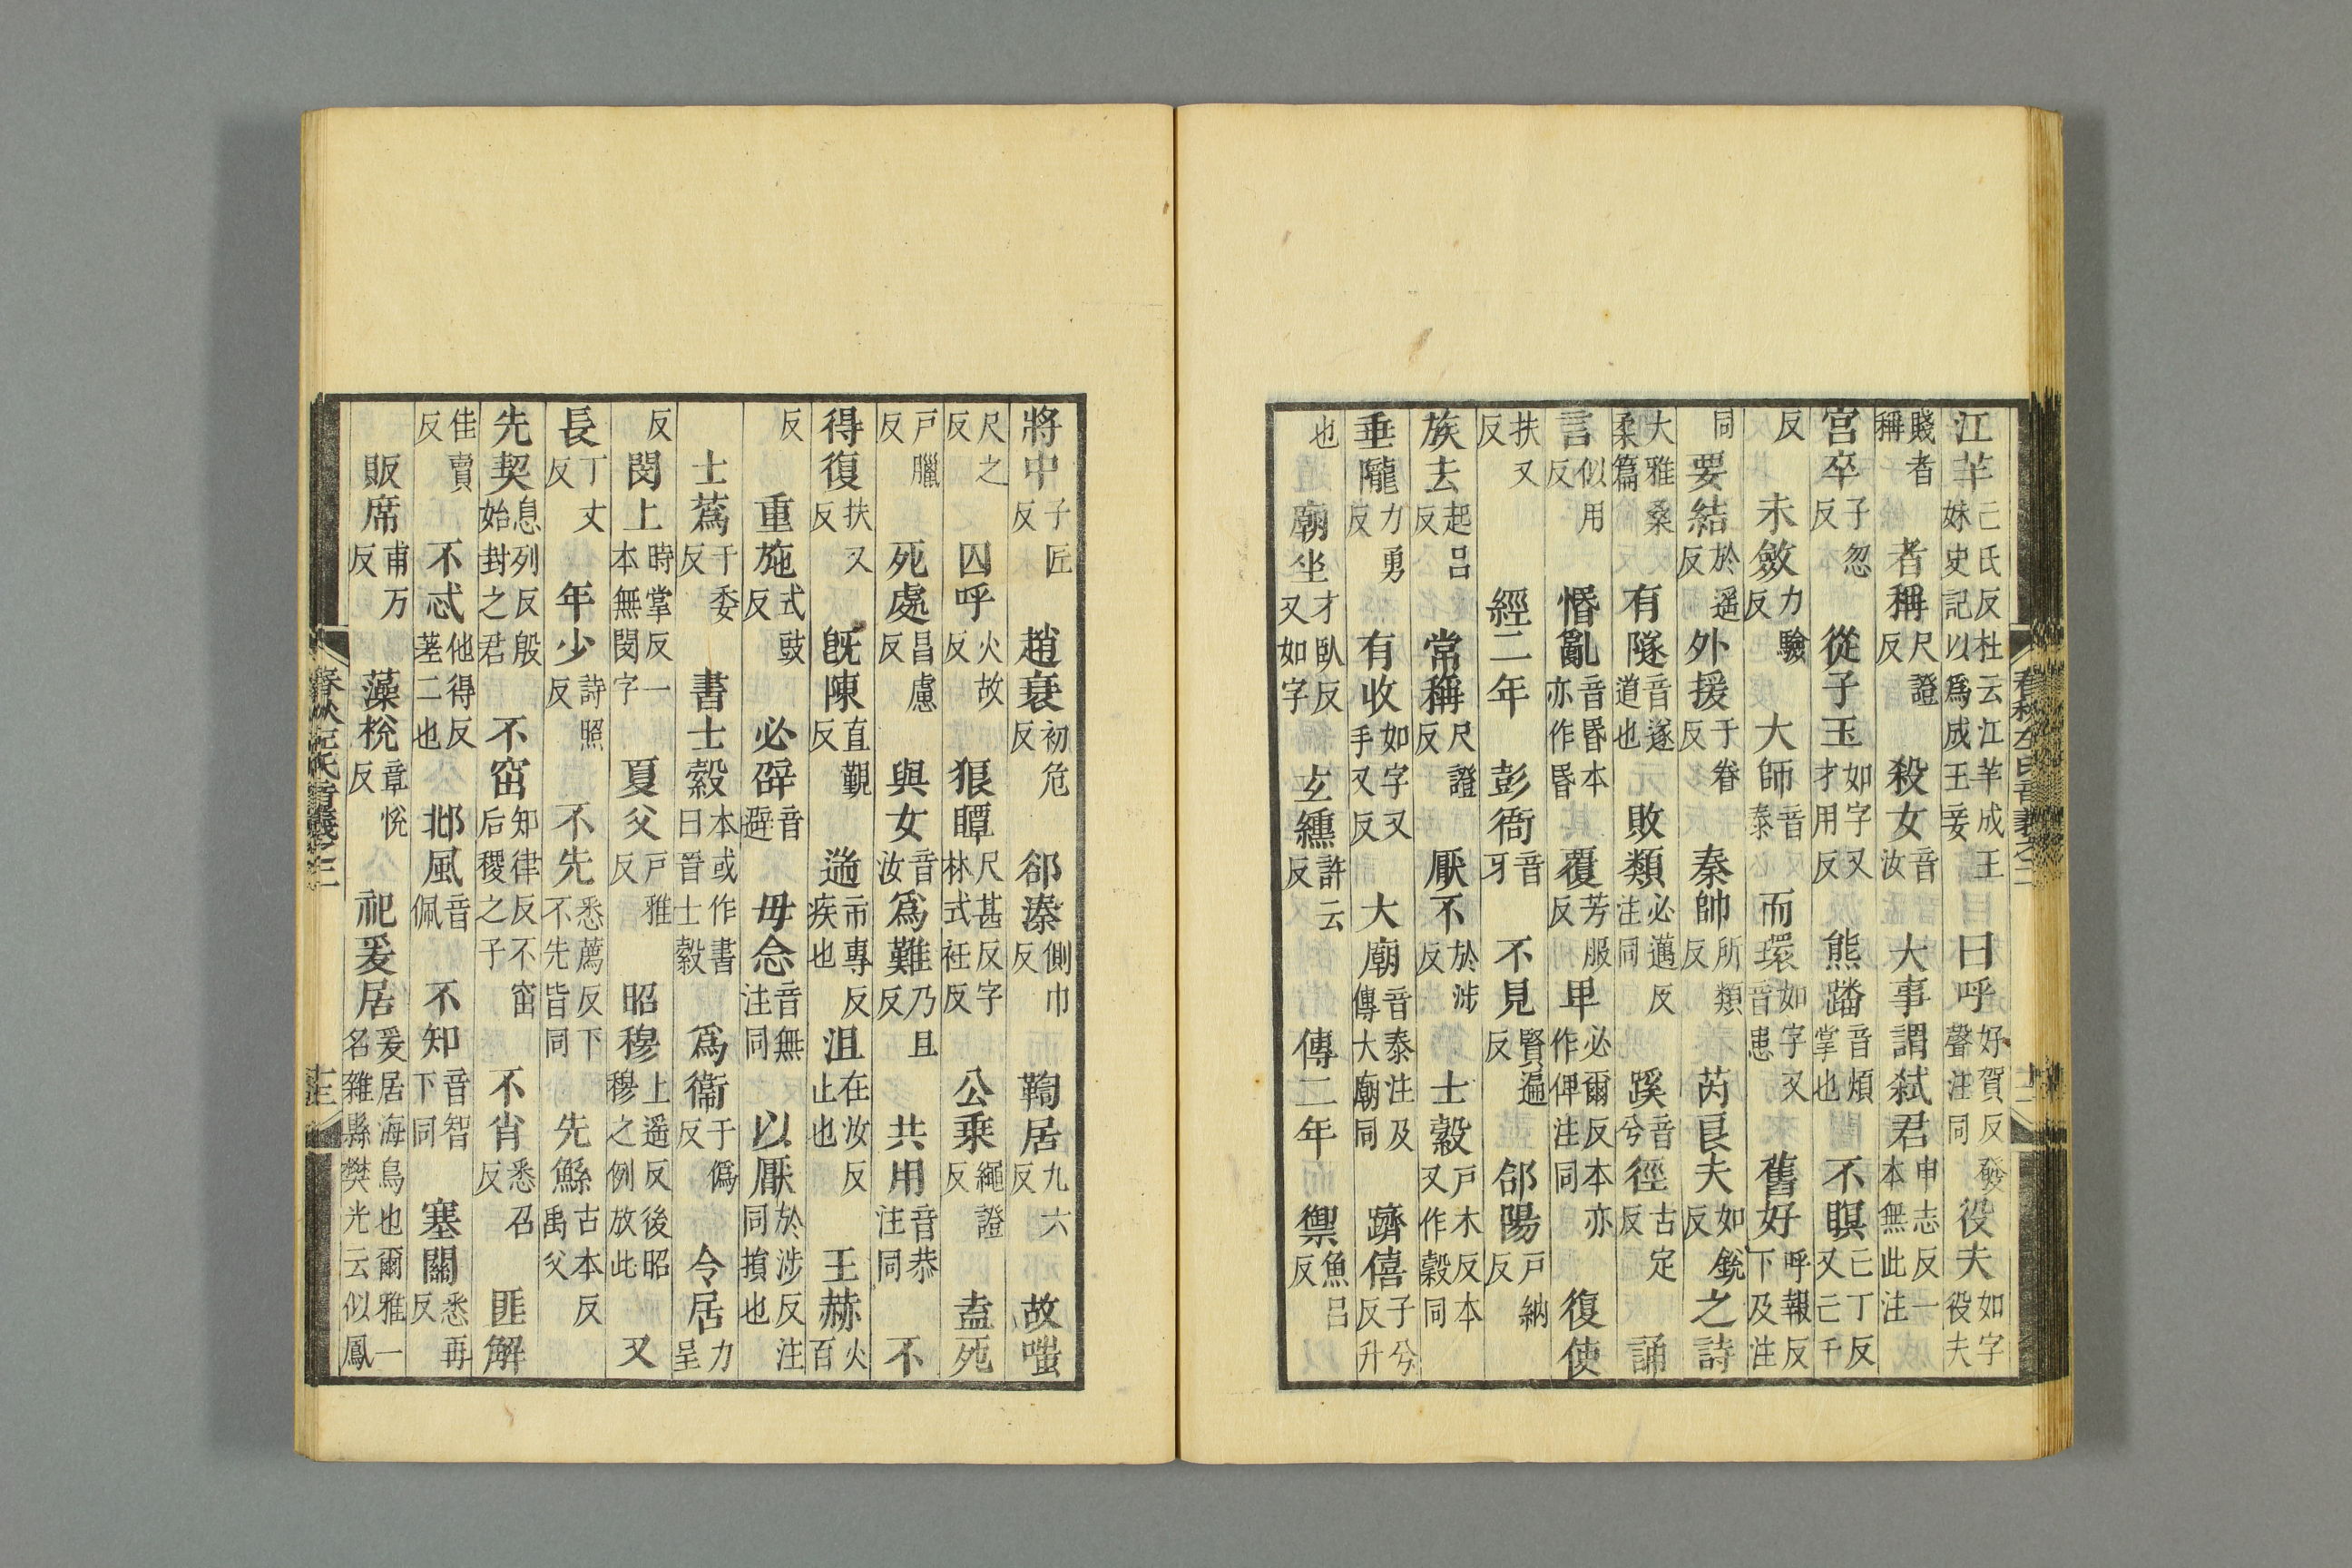 江芉亡氏反杜云江芉成王妹史記以爲成王妾曰呼好賀反發聲注同役夫如字役夫
賤者稱者稱尺證反殺女音汝大事謂弑君申志反一本無此注
宮卒子忽反從子玉如字又才用反熊蹯音煩掌也不瞑亡丁反又亡千
反未斂力驗反大師音泰而環如字又音患舊好呼報反下及注
同要結於遥反外援于眷反秦帥所類反芮良夫如銳反之詩
大雅桑柔篇有隧音遂道也敗類必邁反注同蹊音兮徑古定反誦
言似用反惽亂音昬本亦作昬覆芳服反畀必爾反本亦作俾注同復使
扶又反經二年彭衙音牙不見賢遍反郃陽戶納反
族去起呂反常稱尺證反厭不於涉反士縠戶木反本又作穀同
垂隴力勇反有收如字又手又反大廟音泰注及傳大廟同躋僖子兮反升
也廟坐才臥反又如字玄纁許云反傳二年禦魚呂反
將中子匠反趙衰初危反郤溱側巾反鞫居九六反故嗤
尺之反囚呼火故反狼瞫尺甚反字林式衽反公乘繩證反盍死
戶臘反死處昌慮反與女音汝爲難乃旦反共用音恭注同不
得復扶又反旣陳直覲反遄市專反疾也沮在汝反止也王赫火百
反重施式豉反必辟音避毋念音無注同以厭於涉反注同損也
士蔿于委反書士縠本或作書曰晉士縠爲衞于僞反令居力呈
反閔上時掌反一本無閔字夏父戶雅反昭穆上遥反後昭穆之例放此又
長丁丈反年少詩照反不先悉薦反下不先皆同先鯀古本反禹父
先契息列反殷始封之君不窋知律反不窋后稷之子不肖悉召反匪解
佳賣反不忒他得反差二也邶風音佩不知音智下同塞關悉再反
販席甫万反藻梲章悅反祀爰居爰居海鳥也爾雅一名雜縣樊光云似鳳
春秋左氏音義之二
十三